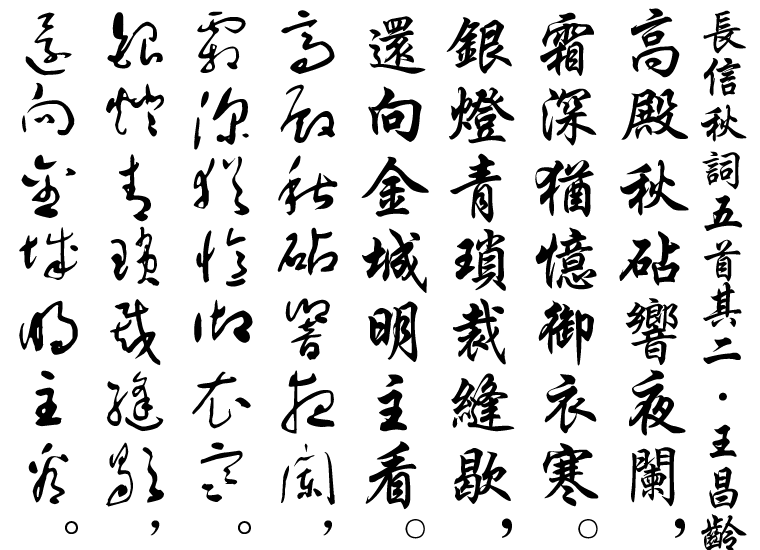 長信秋詞五首其二・王昌齡
高殿秋砧響夜闌，
霜深猶憶御衣寒。
銀燈青瑣裁縫歇，
還向金城明主看。
高殿秋砧響夜闌，
霜深猶憶御衣寒。
銀燈青瑣裁縫歇，
還向金城明主看。